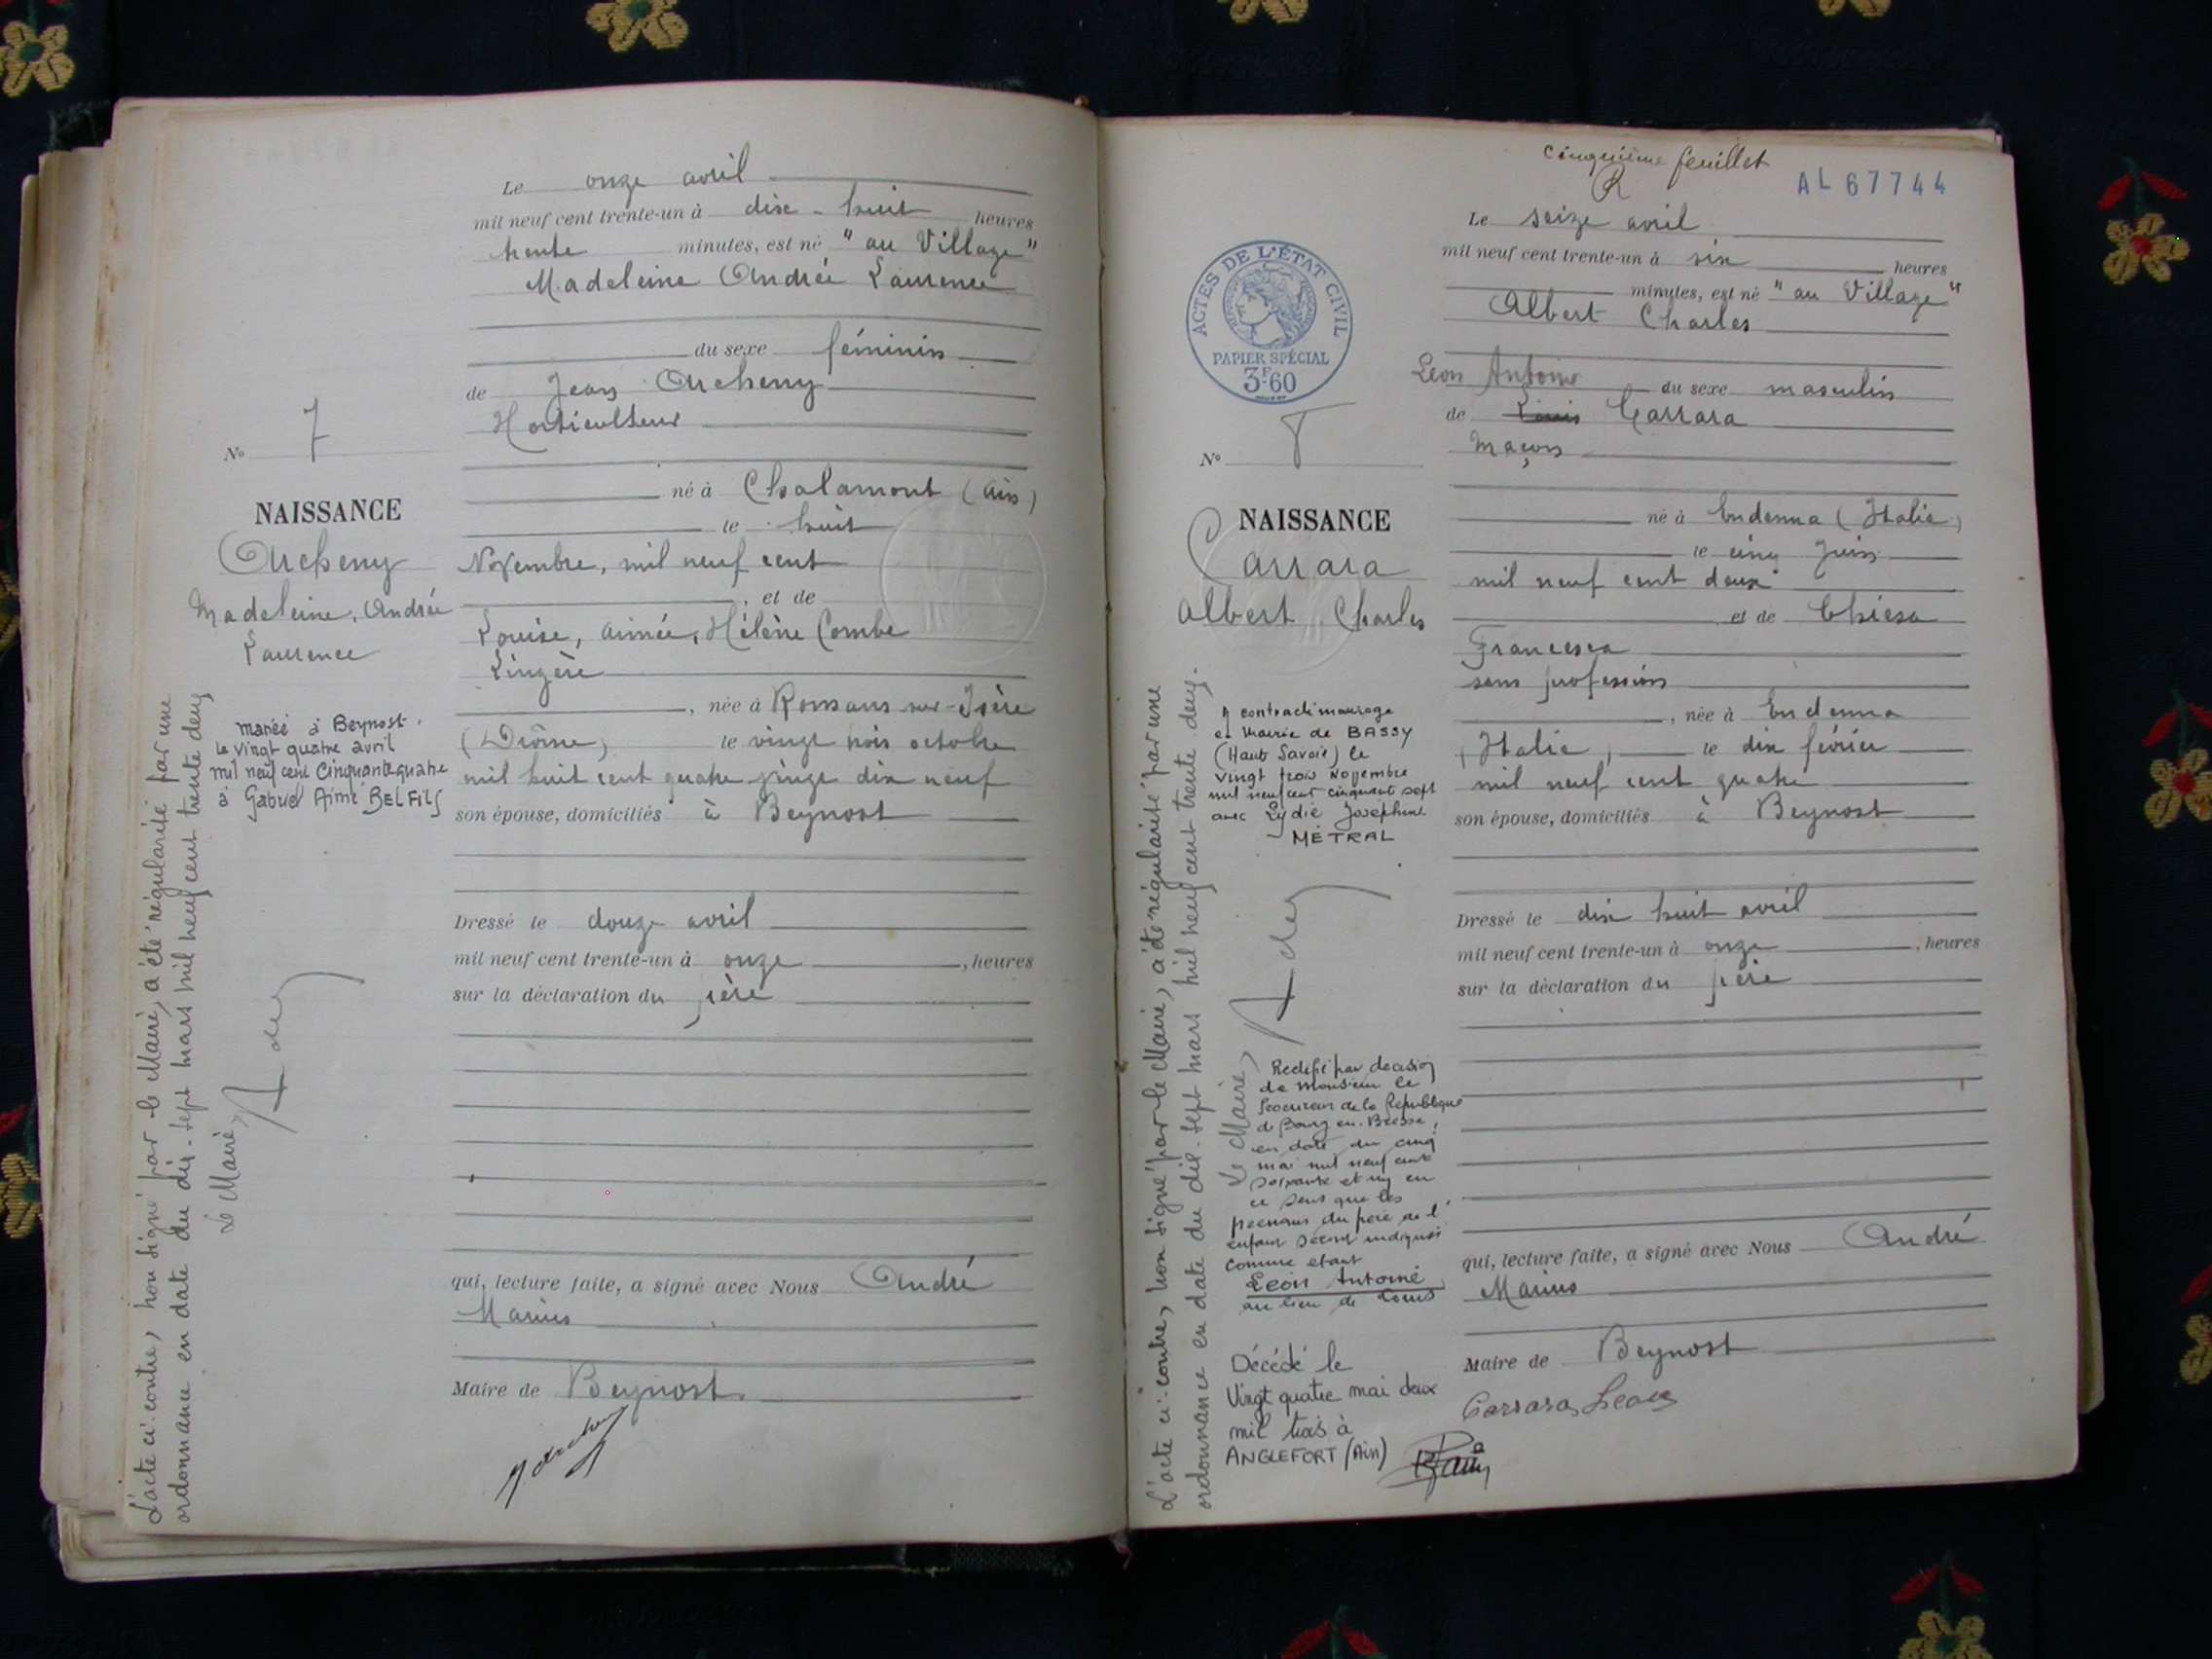 Le onze avril
mil neuf cent trente-un à dix-huit heures
trente minutes, est né "au Village"
Madeleine Andrée Laurence
du sexe féminin
de Jean Archeny
Horticulteur
né à Chalamont (Ain)
le huit
Novembre, mil neuf cent
, et de
Louise, Aimée, Hélène Combe
Lingère
, née à Romans-sur-Isère
(Drôme) le vingt trois octobre
mil huit cent quatre vingt dix neuf
son épouse, domiciliés à Beynost
Dressé le douze avril
mil neuf cent trente-un à onze, heures
sur la déclaration du père
qui, lecture faite, a signé avec Nous André
Marius
Maire de Beynost
No 7
NAISSANCE
Archeny
Madeleine, Andrée
Laurence
mariée à Beynost
le vingt quatre avril
mil neuf cent cinquante quatre
à Gabriel Aimé BELFILS
L'acte ci-contre, non signé par le Maire, a été régularisé par une
ordonnance en date du dix-sept mars mil neuf cent trente deux
Le Maire,
cinquième feuillet
AL 67744
Le seize avril
mil neuf cent trente-un à six heures
minutes, est né "au Village"
Albert Charles
Léon Antoine du sexe masculin
de Louis Carrara
Maçon
né à Endenna (Italie)
le cinq Juin
mil neuf cent deux
et de Chiesa
Francesca
sans profession
, née à Endenna
(Italie) le dix février
mil neuf cent quatre
son épouse, domiciliés à Beynost
Dressé le dix huit avril
mil neuf cent trente-un à onze, heures
sur la déclaration du père
qui, lecture faite, a signé avec Nous André
Marius
Maire de Beynost
Carrara Léon
ACTES DE L'ÉTAT CIVIL
PAPIER SPÉCIAL
3F60
No 8
NAISSANCE
Carrara
Albert Charles
A contracté mariage
en Mairie de BASSY
(Haute Savoie) le
vingt trois Novembre
mil neuf cent cinquante sept
avec Lydie Joséphine
MÉTRAL
L'acte ci-contre, non signé par le Maire, a été régularisé par une
ordonnance en date du dix-sept mars mil neuf cent trente deux.
Le Maire,
Rectifié par décision
de Monsieur le
Procureur de la République
de Bourg en Bresse,
en date du cinq
mai mil neuf cent
soixante et un en
ce sens que les
prénoms du père de l'
enfant seront indiqués
comme étant
Léon Antoine
au lieu de Louis
Décédé le
Vingt quatre mai deux
mil trois à
ANGLEFORT (Ain)